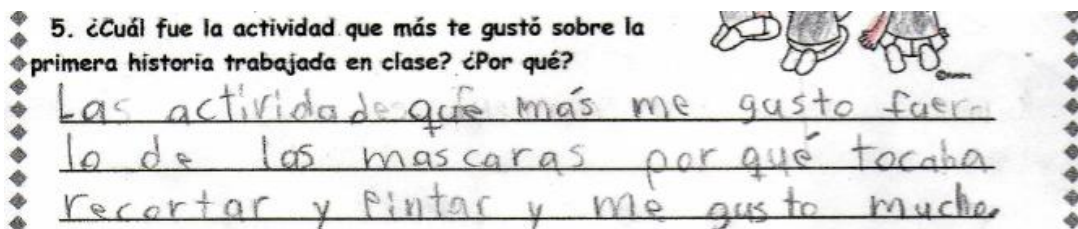 5. ¿Cuál fue la actividad que más te gustó sobre la
primera historia trabajada en clase? ¿Por qué?
Las actividades que más me gusto fuero
lo de las mascaras por qué tocaba
recortar y pintar y me gusto mucho